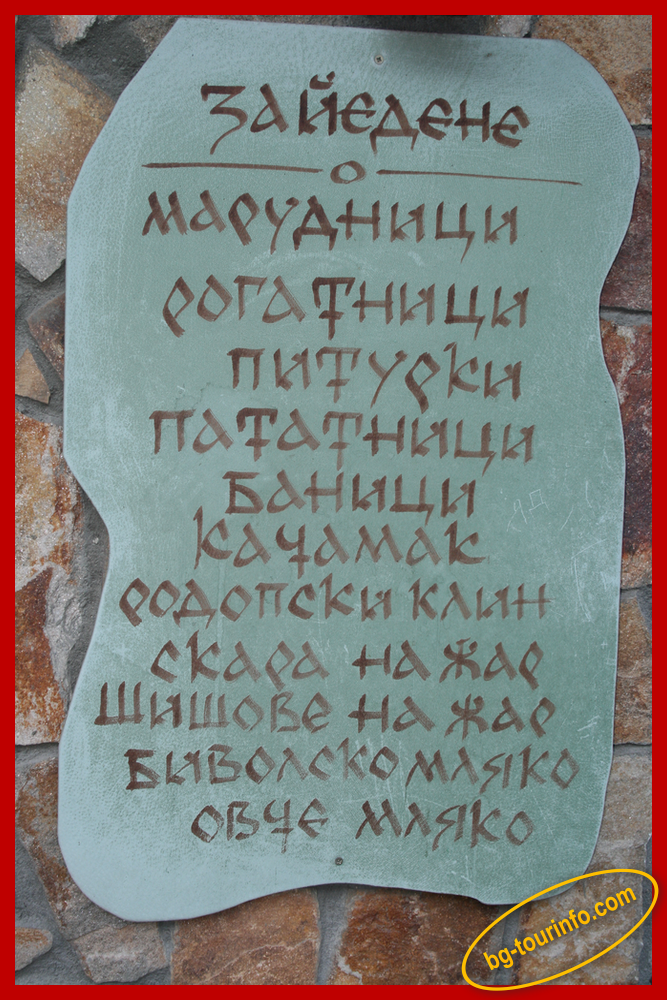 За йедене
марудници
рогатници
питурки
пататници
баници
качамак
родопски клин
скара на жар
шишове на жар
биволско мляко
овче мляко
bg-tourinfo.com